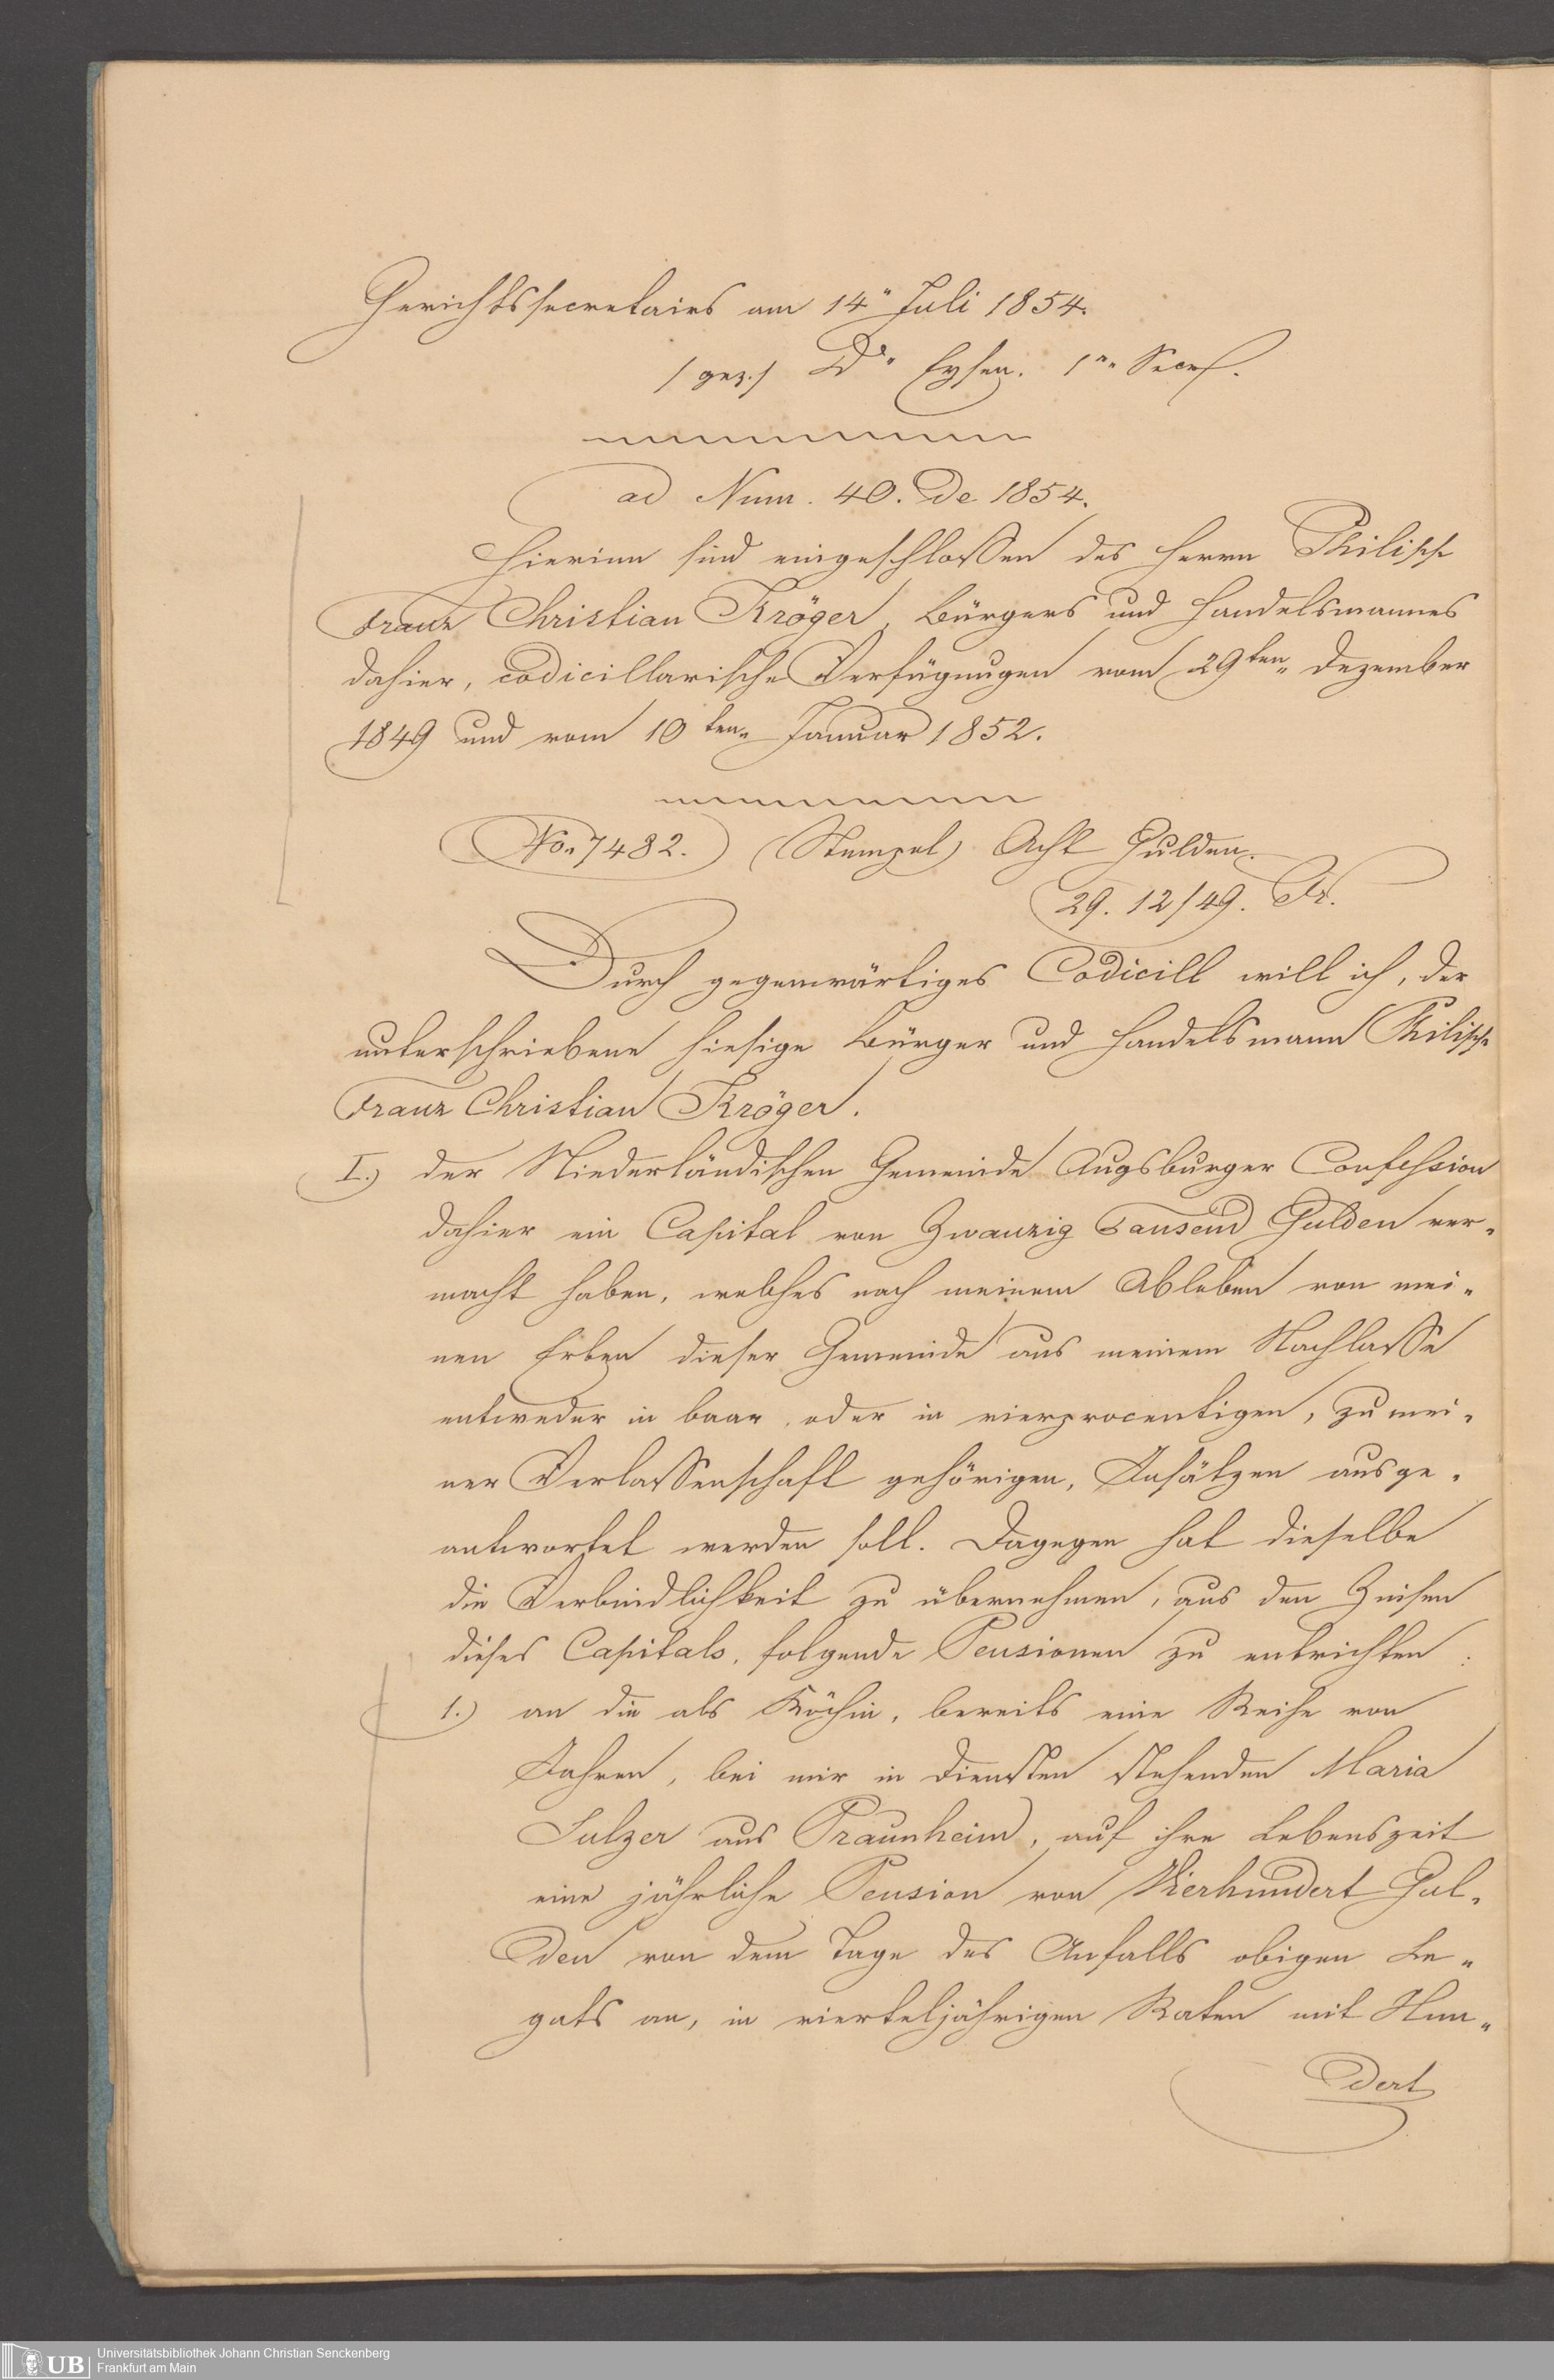 Gerichtssecretairs am 14" Juli 1854.
/gez./ Dr. Eysen. 1r. Secr.
ad Num. 40. De 1854.
Hierinn sind eingeschlossen des Herrn Philipp
Franz Christian Kröger, Bürgers und Handelsmannes
dahier, codicillarische Verfügungen vom 29ten. Dezember
1849 und vom 10ten. Januar 1852.
No. 7482. (Stempel) Acht Gulden.
29. 12/49.
Durch gegenwärtiges Codicill will ich, der
unterschriebene hiesige Bürger und Handelsmann Philipp
Franz Christian Kröger.
I.) der Niederländischen Gemeinde Augsburger Confession
dahier ein Capital von Zwanzig Tausend Gulden ver-
macht haben, welches nach meinem Ableben von mei-
nen Erben dieser Gemeinde aus meinem Nachlasse
entweder in baar, oder in vierprocentigen, zu mei-
ner Verlassenschaft gehörigen, Insätzen ausge-
antwortet werden soll. Dagegen hat dieselbe
die Verbindlichkeit zu übernehmen, aus den Zinsen
dieses Capitals, folgende Pensionen zu entrichten:
1.) an die als Köchin, bereits eine Reihe von
Jahren, bei mir in Diensten stehenden Maria
Sulzer aus Praunheim, auf ihre Lebenszeit
eine jährliche Pension von Vierhundert Gul-
den von dem Tage des Anfalls obigen Le-
gats an, in vierteljährigen Raten mit Hun-
dert
Universitätsbibliothek Johann Christian Senckenberg
UB Frankfurt am Main